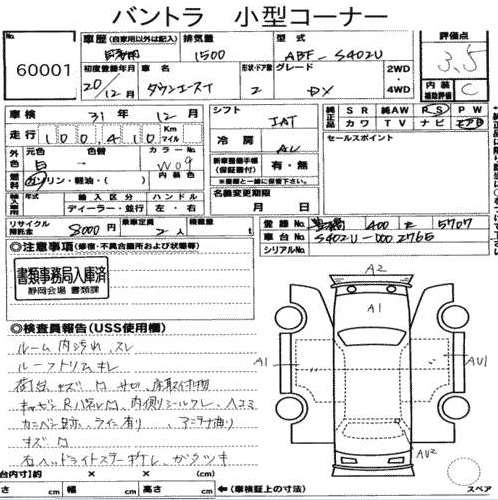 バントラ 小型コーナー
No.
60001
車歴 (自家用以外は記入)
排気量
1500
型式
ABF-S402U
評価点
3.5
初度登録年月
20/12月
車名
タウンエースT
形状・ドア数
2
グレード
DX
2WD・4WD
内装
補助評価
C
車検
31年 12月
シフト
IAT
純正品
SR 純AW PS PW
カワ TV ナビ エアB
走行
100410 Km マイル
冷房
AC
セールスポイント
外色
元色
色替
カラーNo.
白
W09
燃料
ガソリン・軽油・( )
内装色
新車整備手帳 (保証書付)
有・無
輸入車用
年式
輸入区分
ハンドル
ディーラー・並行
左・右
名義変更期限
月 日
リサイクル預託金
8000円
乗車定員
2人
積載量
t
登録No.
豊橋 400 5707
車台No.
S402U-0002765
シリアルNo.
◎注意事項(修復・不具合箇所および状態等)
書類事務局入庫済
静岡会場 書類課
◎検査員報告(USS使用欄)
ルーム内汚れ、スレ
ルーフトリムキレ
荷台キズM サビ、床取付物
A2
A1
A1
AU1
AU2
右ヘッドライトステーオレ、ガタツキ
荷台内寸 長さ × 幅 × 高さ
cm cm cm
←(車検証上の寸法)
スペア